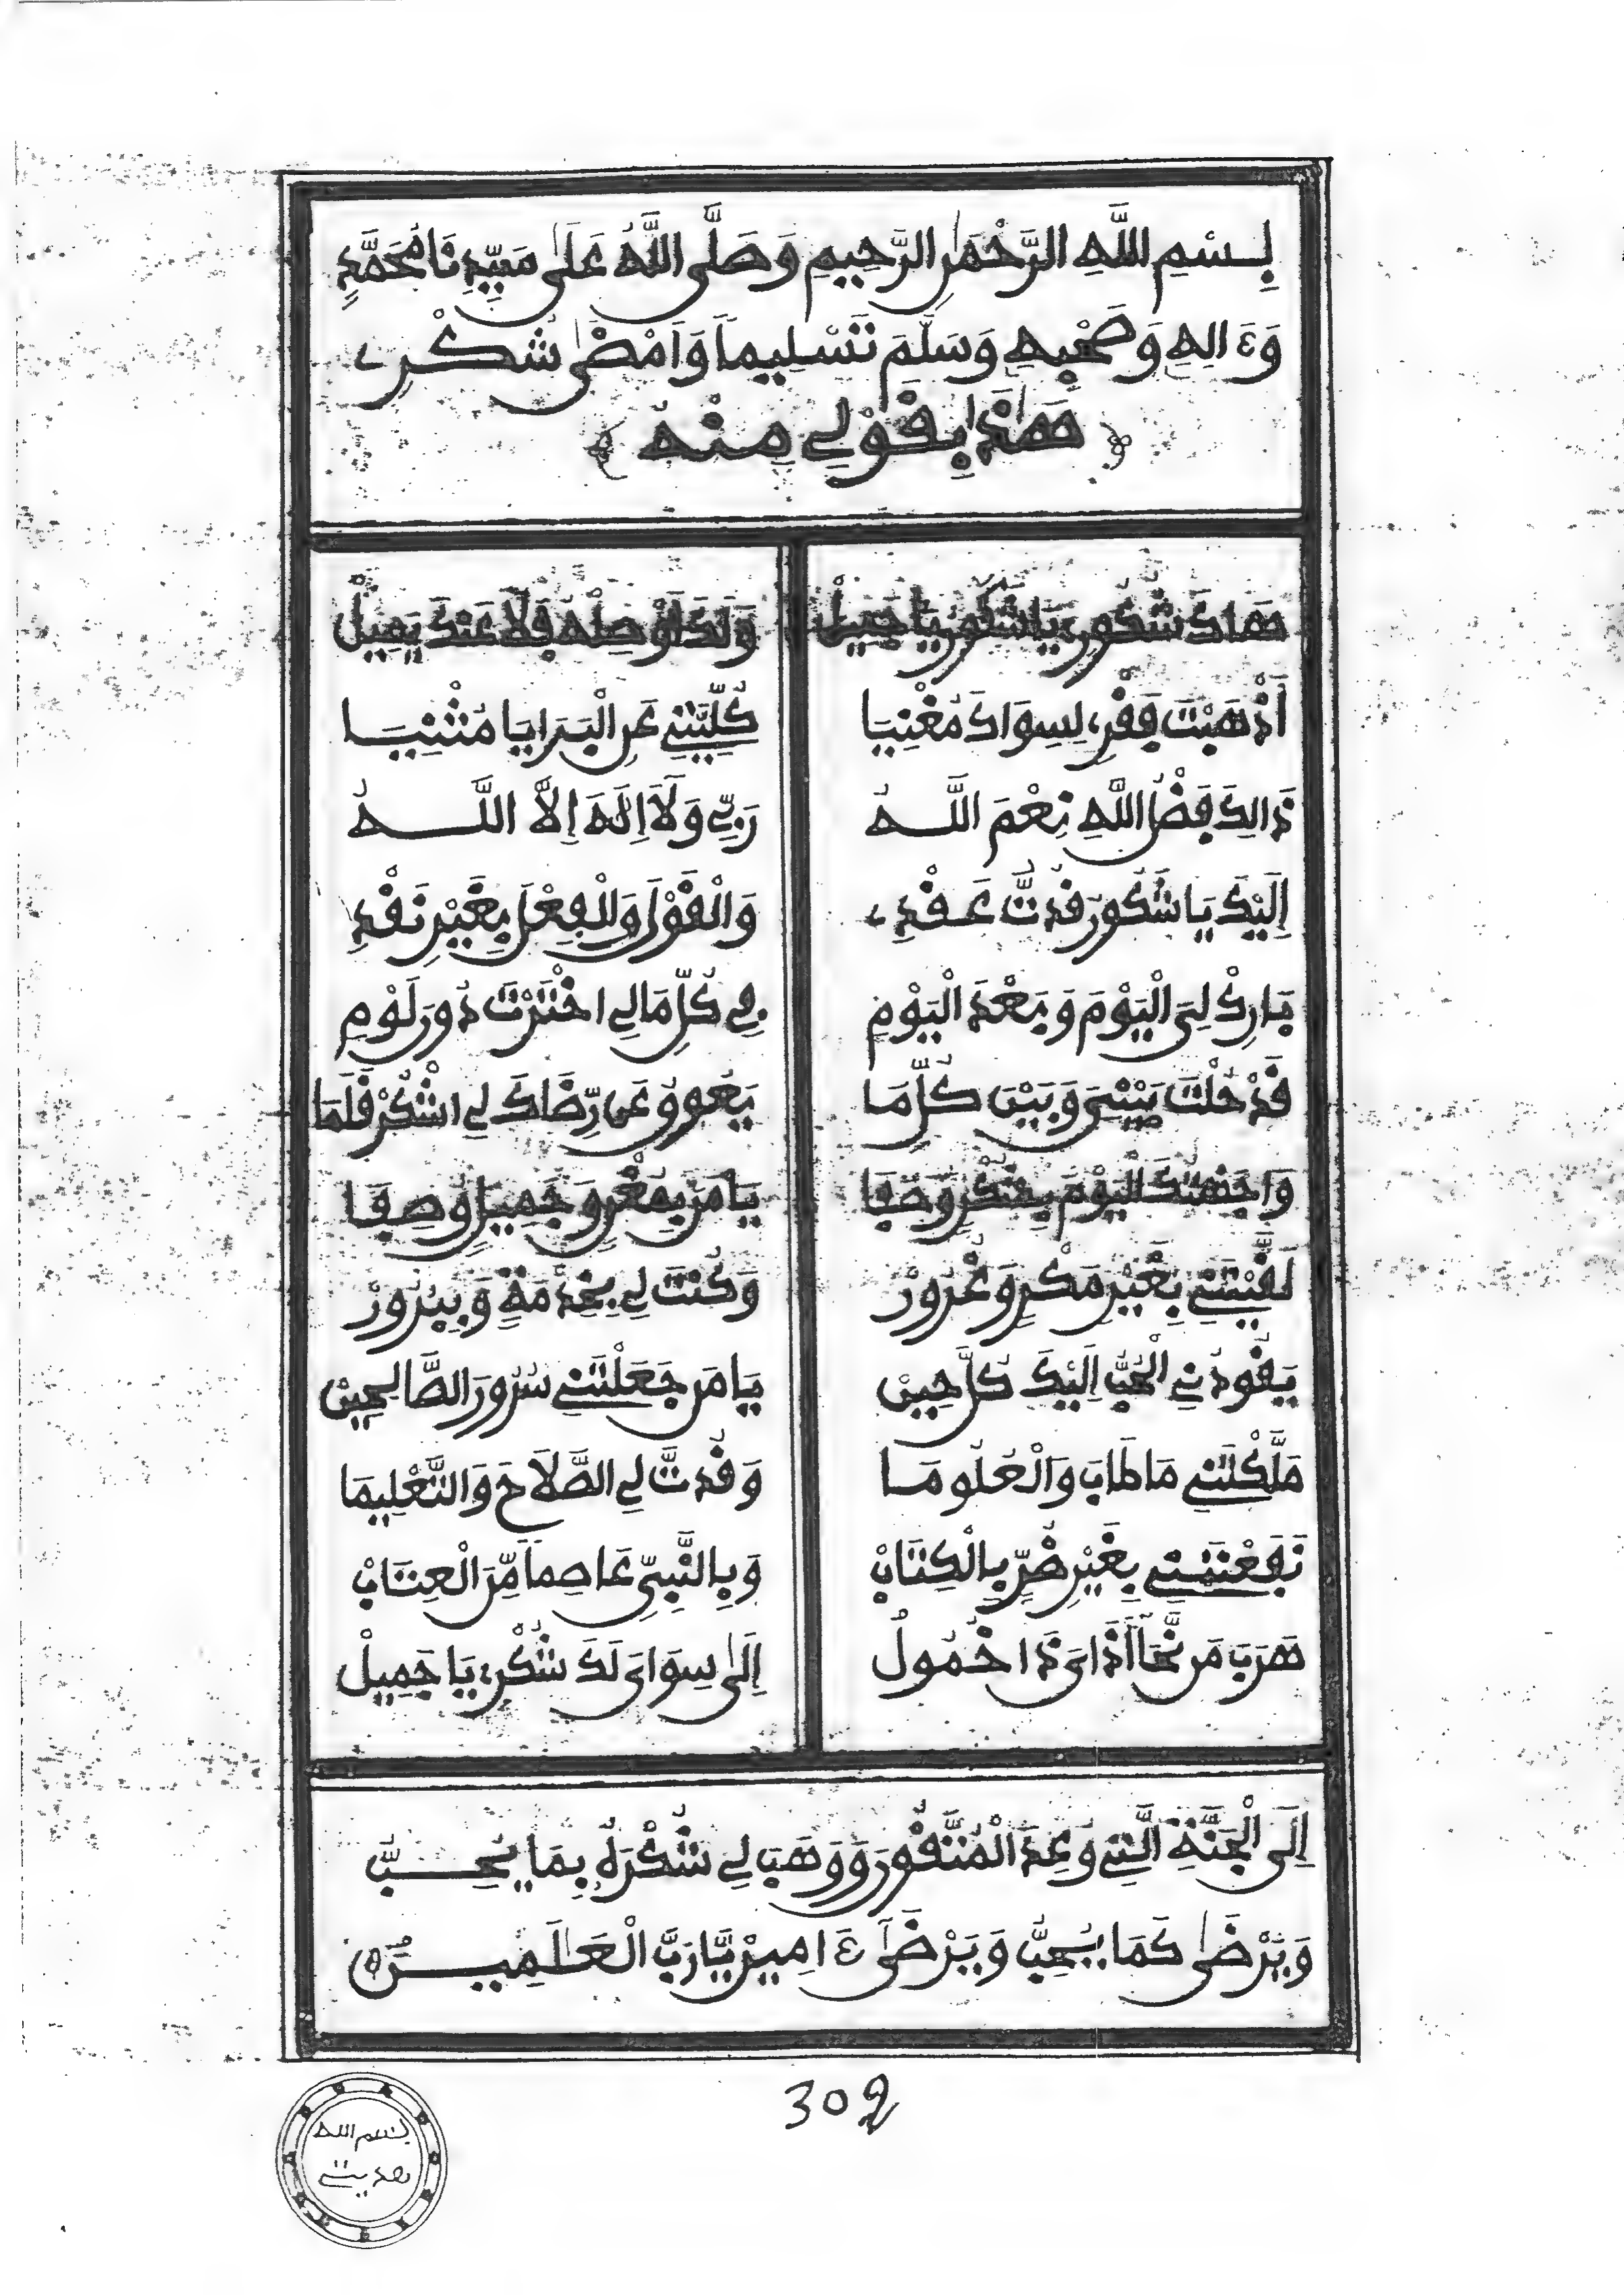 بِسْمِ اللَّهِ الرَّحْمَٰنِ الرَّحِيمِ وَصَلَّى اللَّهُ عَلَىٰ سَيِّدِنَا مُحَمَّدٍ
وَءَالِهِ وَصَحْبِهِ وَسَلَّمَ تَسْلِيماً وَأَمْضَىٰ شُكْرِي
هَٰذَا بِقَوْلِي مِنْهُ
هَاكَ شُكُورِي يَا شَكُورُ يَا جَمِيلْ وَلَكَ أَوْصِلْهُ فَلَا عَنْكَ يَمِيلْ
أَذْهَبْتَ فَقْرِي لِسِوَاكَ مُغْنِيَا كُلِّيَّتِي عَنِ الْبَرَايَا مُثْنِيَا
ذَالِكَ فَضْلُ اللَّهِ نِعْمَ اللَّهُ رَبِّي وَلَا إِلَٰهَ إِلَّا اللَّهُ
إِلَيْكَ يَا شَكُورُ قُدْتَّ عَقْدِي وَالْقَوْلَ وَالْفِعْلَ بِغَيْرِ نَقْدِ
بَارِكْ لِيَ الْيَوْمَ وَبَعْدَ الْيَوْمِ فِي كُلِّ مَا لِي اخْتَرْتَ دُونَ لَوْمِ
قَدْ حُلْتَ بَيْنِي وَبَيْنَ كُلِّ مَا يَعُوقُ عَن رِّضَاكَ لِي اشْكُرْ قَلَمَا
وَاجَهْتُكَ الْيَوْمَ بِشُكْرٍ وَصَفَا يَا مَن بِمُغْنٍ وَجَمِيلٍ وُصِفَا
لَقَّيْتَنِي بِغَيْرِ مَكْرٍ وَغُرُورْ وَكُنْتَ لِي بِخِدْمَةٍ وَبِبُرُورْ
يَقُودُنِي الْحُبُّ إِلَيْكَ كُلَّ حِينْ يَا مَن جَعَلْتَنِي سُرُورَ الصَّالِحِينْ
مَلَّكْتَنِي مَا طَابَ وَالْعُلُومَا وَقُدْتَّ لِي الصَّلَاحَ وَالتَّعْلِيمَا
نَفَعْتَنِي بِغَيْرِ ضُرٍّ بِالْكِتَابْ وَبِالنَّبِيِّ عَاصِماً مِّنَ الْعِتَابْ
هَرَبَ مَن نَّحَا أَذَايَ ذَا خُمُولْ إِلَىٰ سِوَايَ لَكَ شُكْرِي يَا جَمِيلْ
إِلَى الْجَنَّةِ الَّتِي وُعِدَ الْمُتَّقُونَ وَوَهَبَ لِي شُكْرَهُ بِمَا يُحِبُّ
وَيَرْضَىٰ كَمَا يُحِبُّ وَيَرْضَىٰ ءَامِينَ يَا رَبَّ الْعَالَمِينَ
302
بسم الله